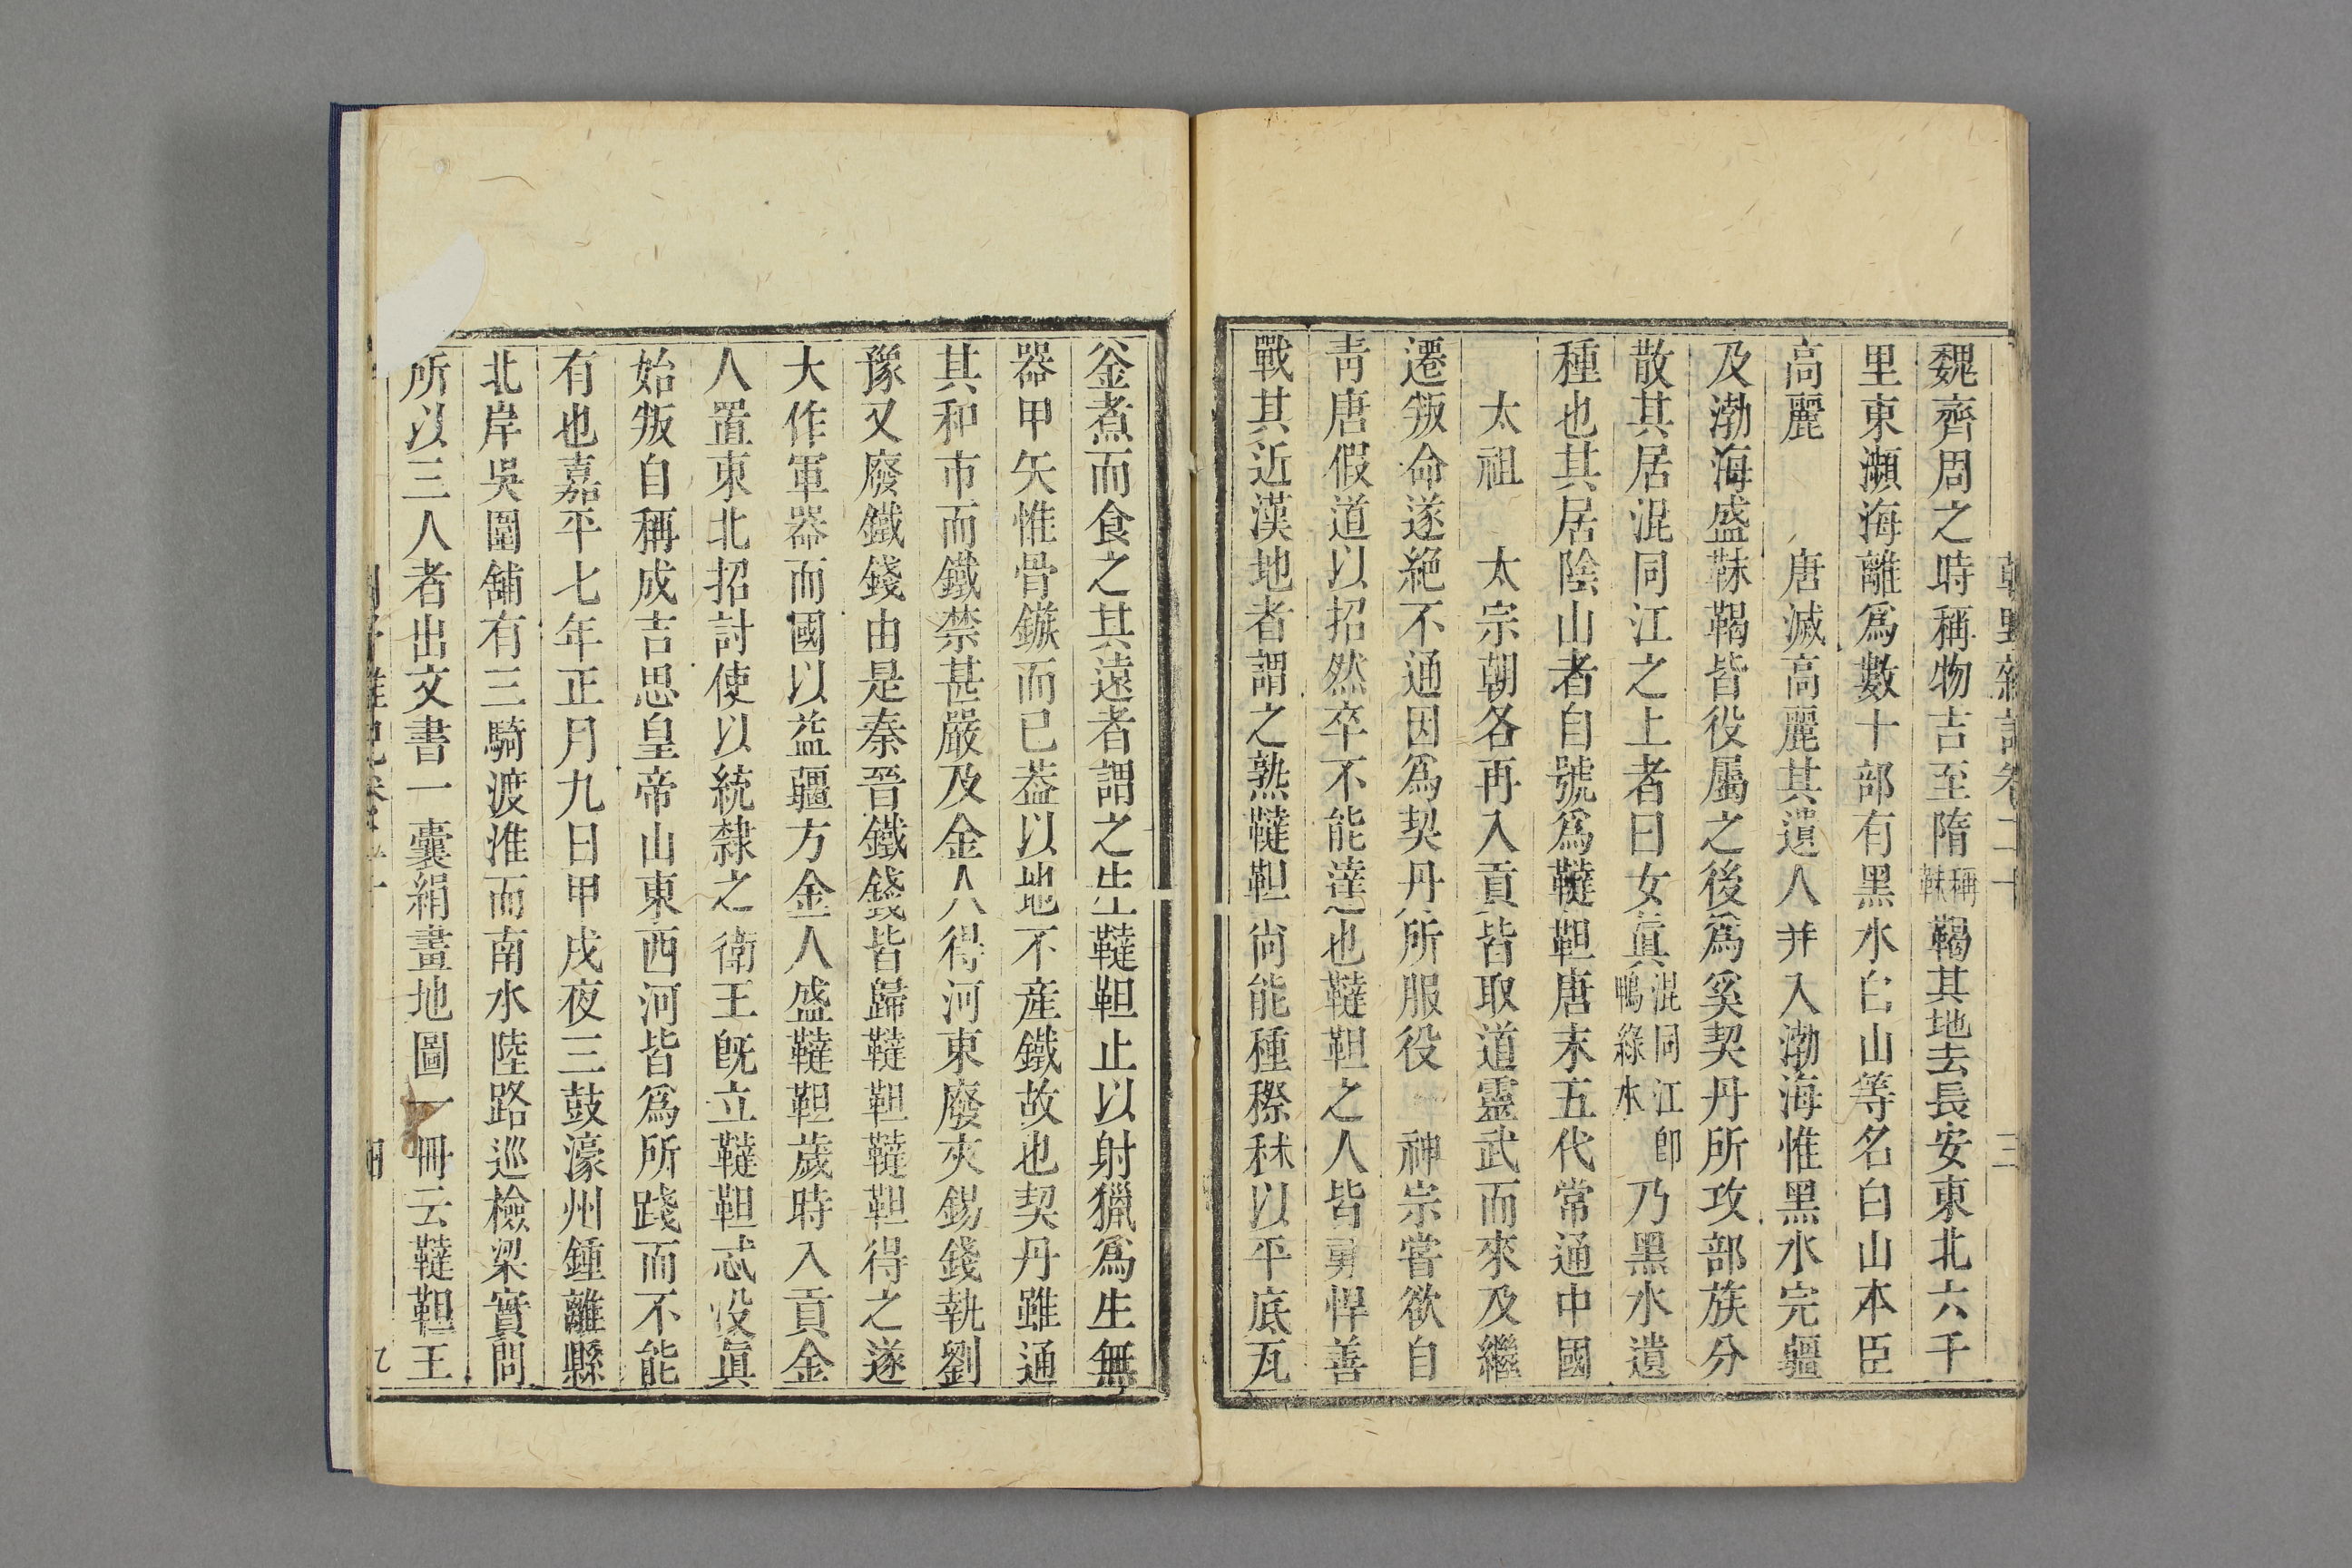 魏齊周之時稱物吉至隋稱靺鞨其地去長安東北六千
里東瀕海離爲數十部有黑水白山等名白山本臣
高麗　唐滅高麗其遺人并入渤海惟黑水完疆
及渤海盛靺鞨皆役屬之後爲奚契丹所攻部族分
散其居混同江之上者曰女眞混同江卽鴨綠水乃黑水遺
種也其居陰山者自號爲韃靼唐末五代常通中國
太祖　太宗朝各再入貢皆取道靈武而來及繼
遷叛命遂絶不通因爲契丹所服役　神宗嘗欲自
靑唐假道以招然卒不能達也韃靼之人皆勇悍善
戰其近漢地者謂之熟韃靼尙能種穄秫以平底瓦
釜煮而食之其遠者謂之生韃靼止以射獵爲生無
器甲矢惟骨鏃而已葢以地不産鐵故也契丹雖通
其和市而鐵禁甚嚴及金人得河東廢夾錫錢執劉
豫又廢鐵錢由是秦晉鐵錢皆歸韃靼韃靼得之遂
大作軍器而國以益疆方金人盛韃靼歲時入貢金
人置東北招討使以統隸之衛王旣立韃靼忒沒眞
始叛自稱成吉思皇帝山東西河皆爲所踐而不能
有也嘉平七年正月九日甲戌夜三鼓濠州鍾離縣
北岸吳團舖有三騎渡淮而南水陸路巡檢梁實問
所以三人者出文書一囊絹畫地圖一冊云韃靼王